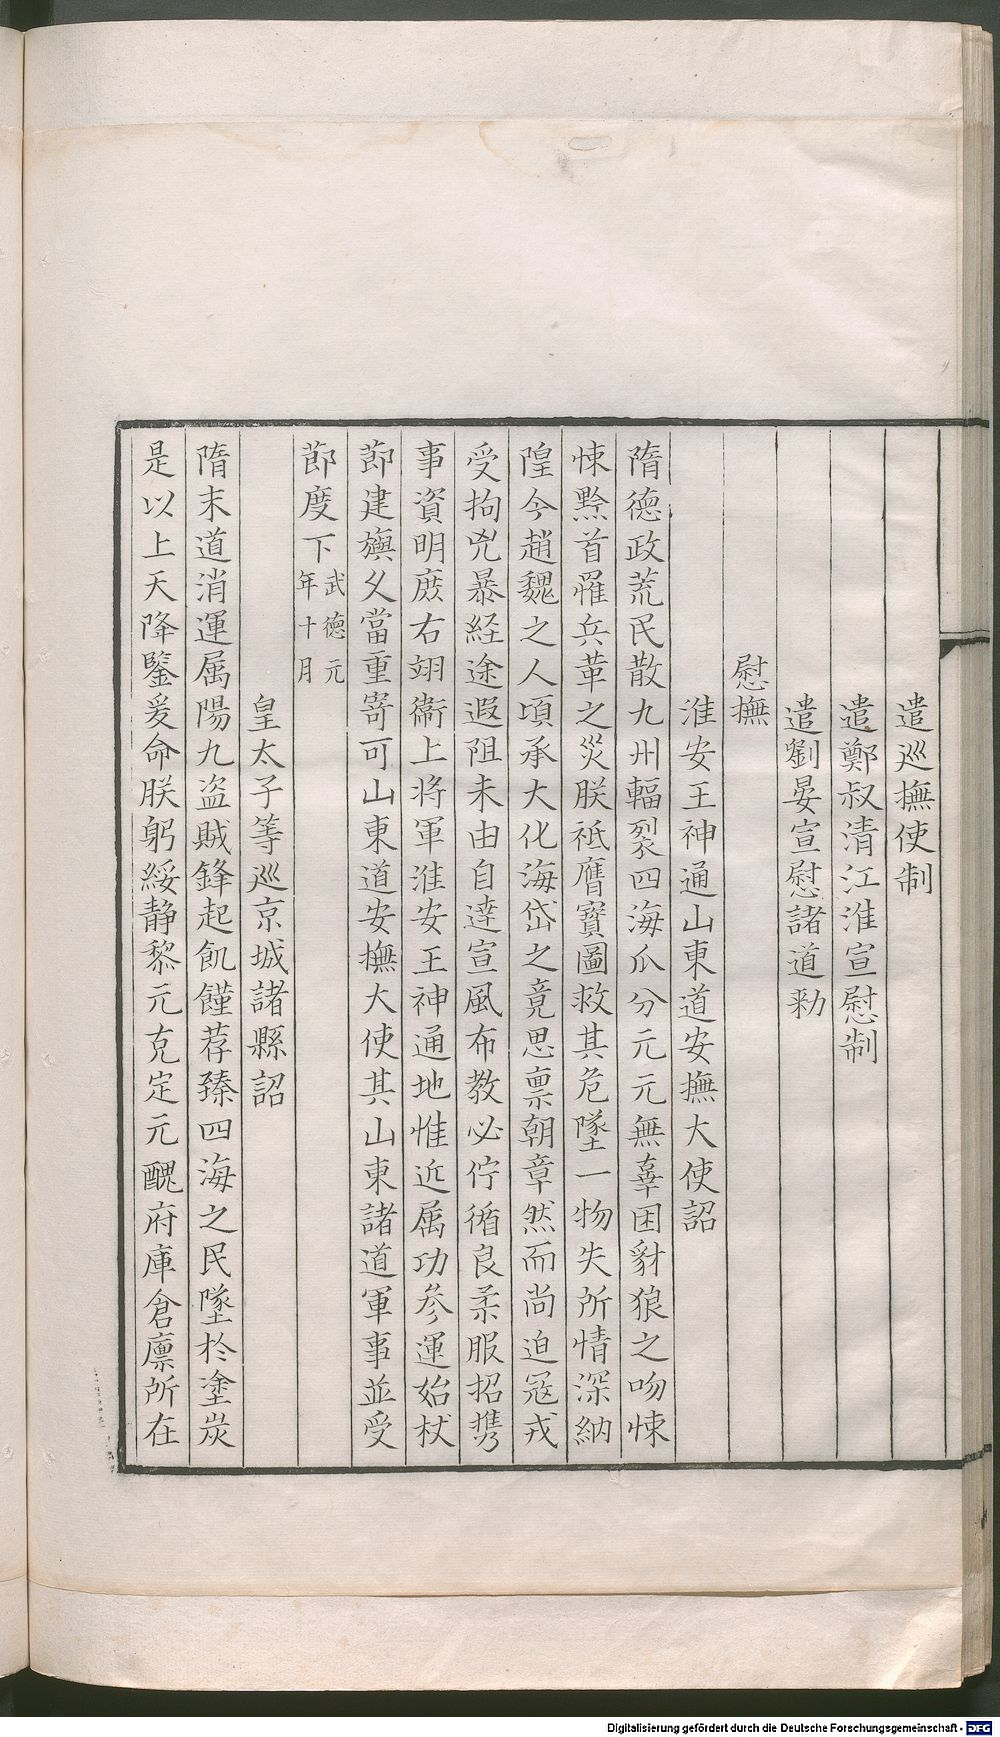 遣巡撫使制
遣鄭叔清江淮宣慰制
遣劉晏宣慰諸道勑
慰撫
淮安王神通山東道安撫大使詔
隋德政荒民散九州輻裂四海瓜分元元無辜困豺狼之吻悚
悚黔首罹兵革之災朕祗膺寶圖救其危墜一物失所情深納
隍今趙魏之人頃承大化海岱之竟思禀朝章然而尚迫冦戎
受拘兇暴経途遐阻未由自達宣風布教必佇循良柔服招携
事資明庻右翊衞上将軍淮安王神通地惟近属功参運始杖
莭建旟乂當重寄可山東道安撫大使其山東諸道軍事並受
莭度下武德元年十月
皇太子等巡京城諸縣詔
隋末道消運属陽九盗賊鋒起飢饉荐臻四海之民墜於塗炭
是以上天降鑒爰命朕躬綏静黎元克定元醜府庫倉廪所在
Digitalisierung gefördert durch die Deutsche Forschungsgemeinschaft - DFG